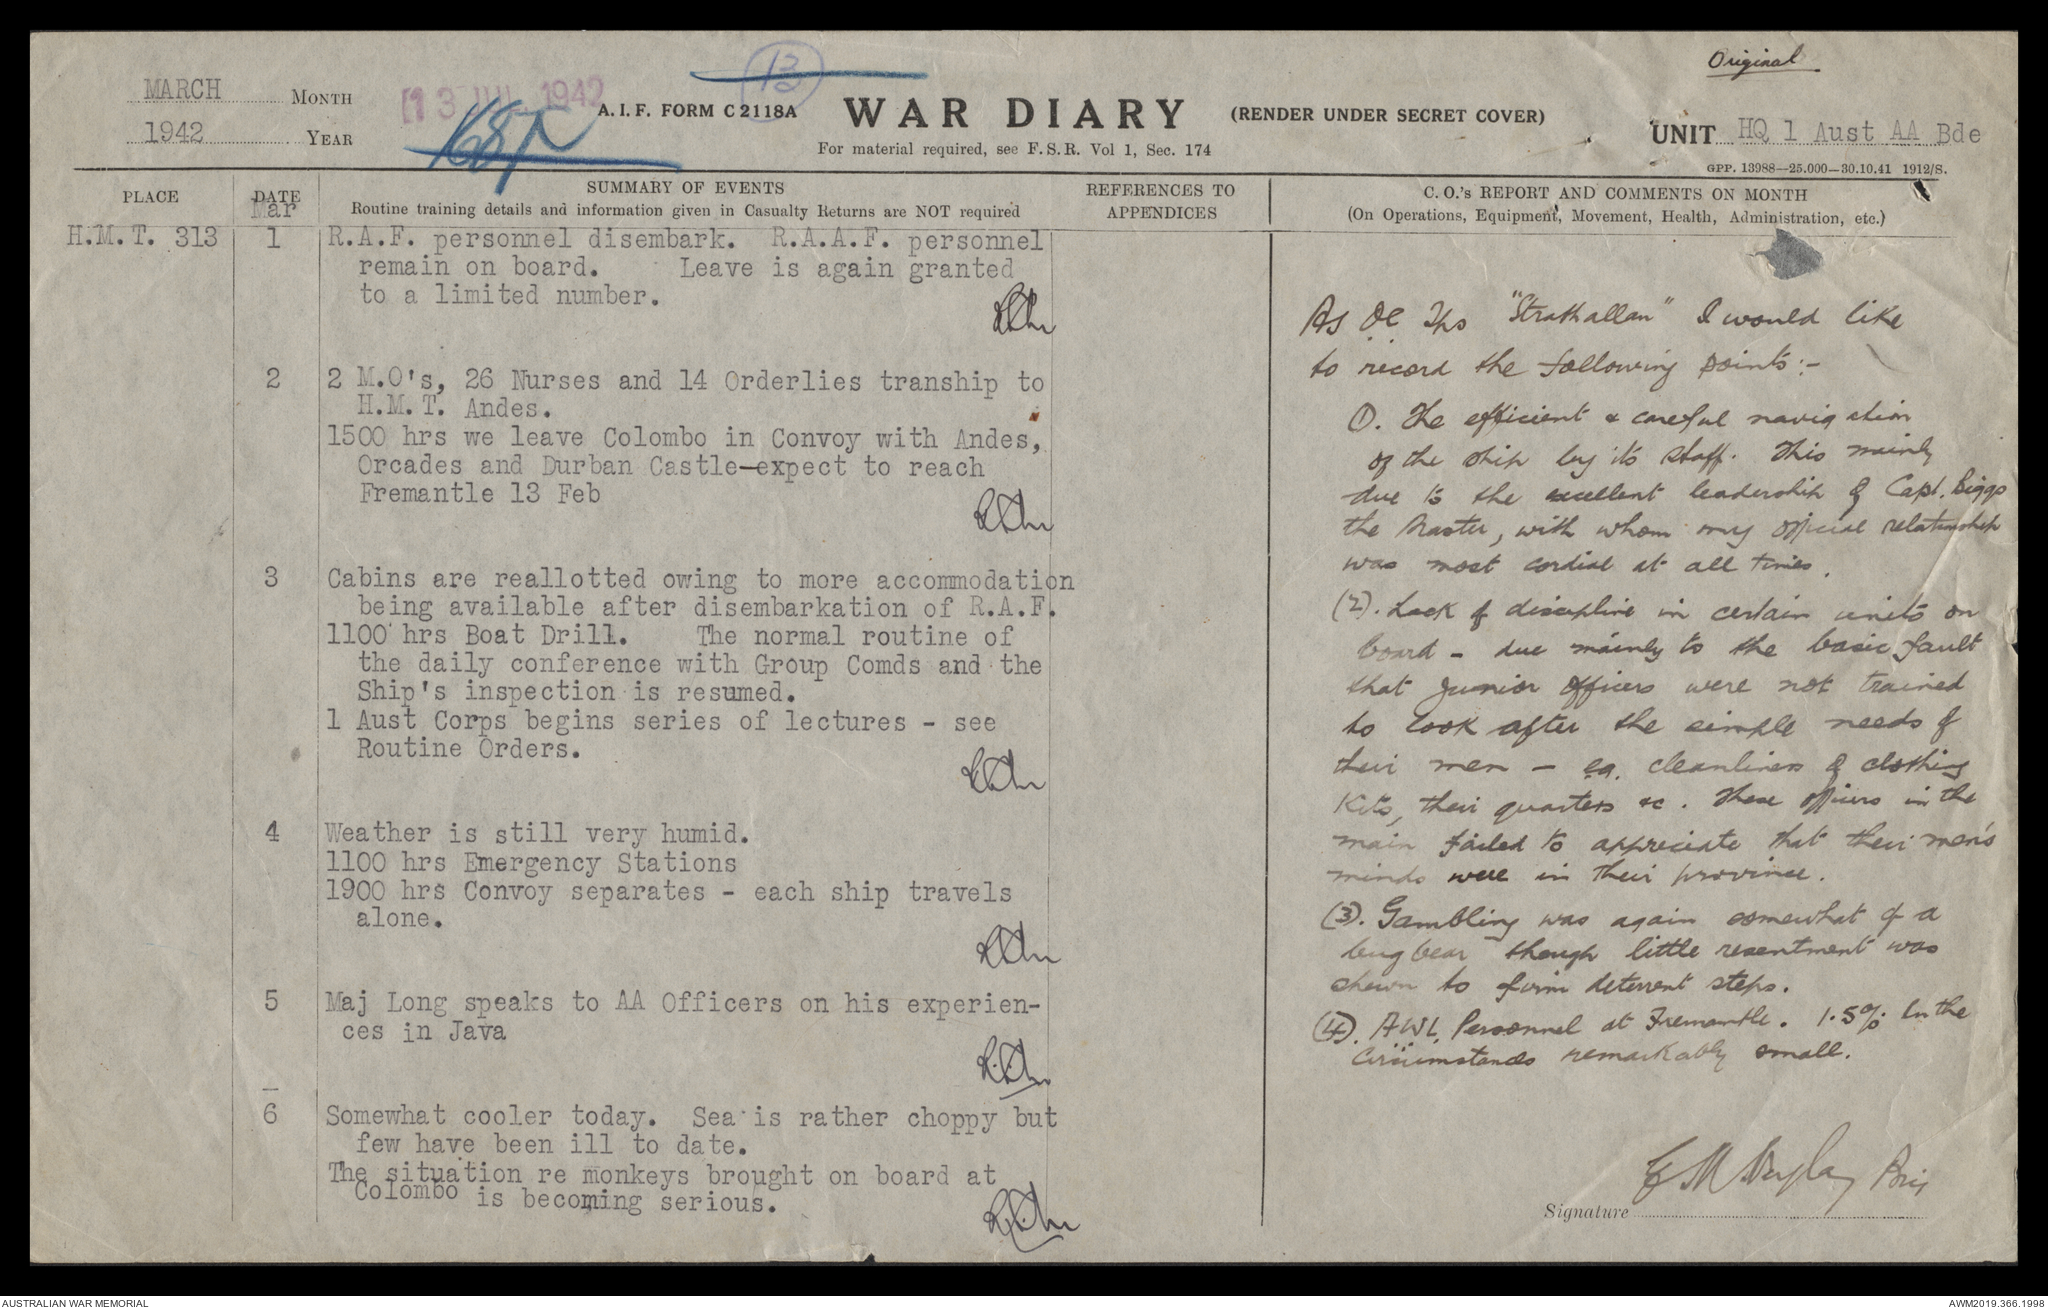 Original
MARCH MONTH
1942 YEAR
13 JUL 1942
13
A.I.F. FORM C2118A
WAR DIARY
(RENDER UNDER SECRET COVER)
For material required, see F.S.R. Vol 1, Sec. 174
UNIT HQ 1 Aust AA Bde
GPP. 13988—25.000—30.10.41 1912/S.
PLACE
DATE
SUMMARY OF EVENTS
Routine training details and information given in Casualty Returns are NOT required
REFERENCES TO
APPENDICES
C.O.'s REPORT AND COMMENTS ON MONTH
(On Operations, Equipment, Movement, Health, Administration, etc.)
Mar
H.M.T. 313
1 R.A.F. personnel disembark. R.A.A.F. personnel
remain on board. Leave is again granted
to a limited number.
2 2 M.O's, 26 Nurses and 14 Orderlies tranship to
H.M.T. Andes.
1500 hrs we leave Colombo in Convoy with Andes,
Orcades and Durban Castle—expect to reach
Fremantle 13 Feb
3 Cabins are reallotted owing to more accommodation
being available after disembarkation of R.A.F.
1100 hrs Boat Drill. The normal routine of
the daily conference with Group Comds and the
Ship's inspection is resumed.
1 Aust Corps begins series of lectures - see
Routine Orders.
4 Weather is still very humid.
1100 hrs Emergency Stations
1900 hrs Convoy separates - each ship travels
alone.
5 Maj Long speaks to AA Officers on his experien-
ces in Java
6 Somewhat cooler today. Sea is rather choppy but
few have been ill to date.
The situation re monkeys brought on board at
Colombo is becoming serious.
As OC Tps "Strathallan" I would like
to record the following points:-
(1). The efficient & careful navigation
of the ship by its staff. This mainly
due to the excellent leadership of Capt. Biggs
the Master, with whom my official relationship
was most cordial at all times.
(2). Lack of discipline in certain units on
board - due mainly to the basic fault
that Junior Officers were not trained
to look after the simple needs of
their men - eg. cleanliness of clothing
Kits, their quarters &c. These officers in the
main failed to appreciate that their men's
minds were in their province.
(3). Gambling was again somewhat of a
bugbear though little resentment was
shewn to firm deterrent steps.
(4). AWL Personnel at Fremantle. 1.5% In the
circumstances remarkably small.
Brig
Signature
AUSTRALIAN WAR MEMORIAL
AWM2019.366.1998